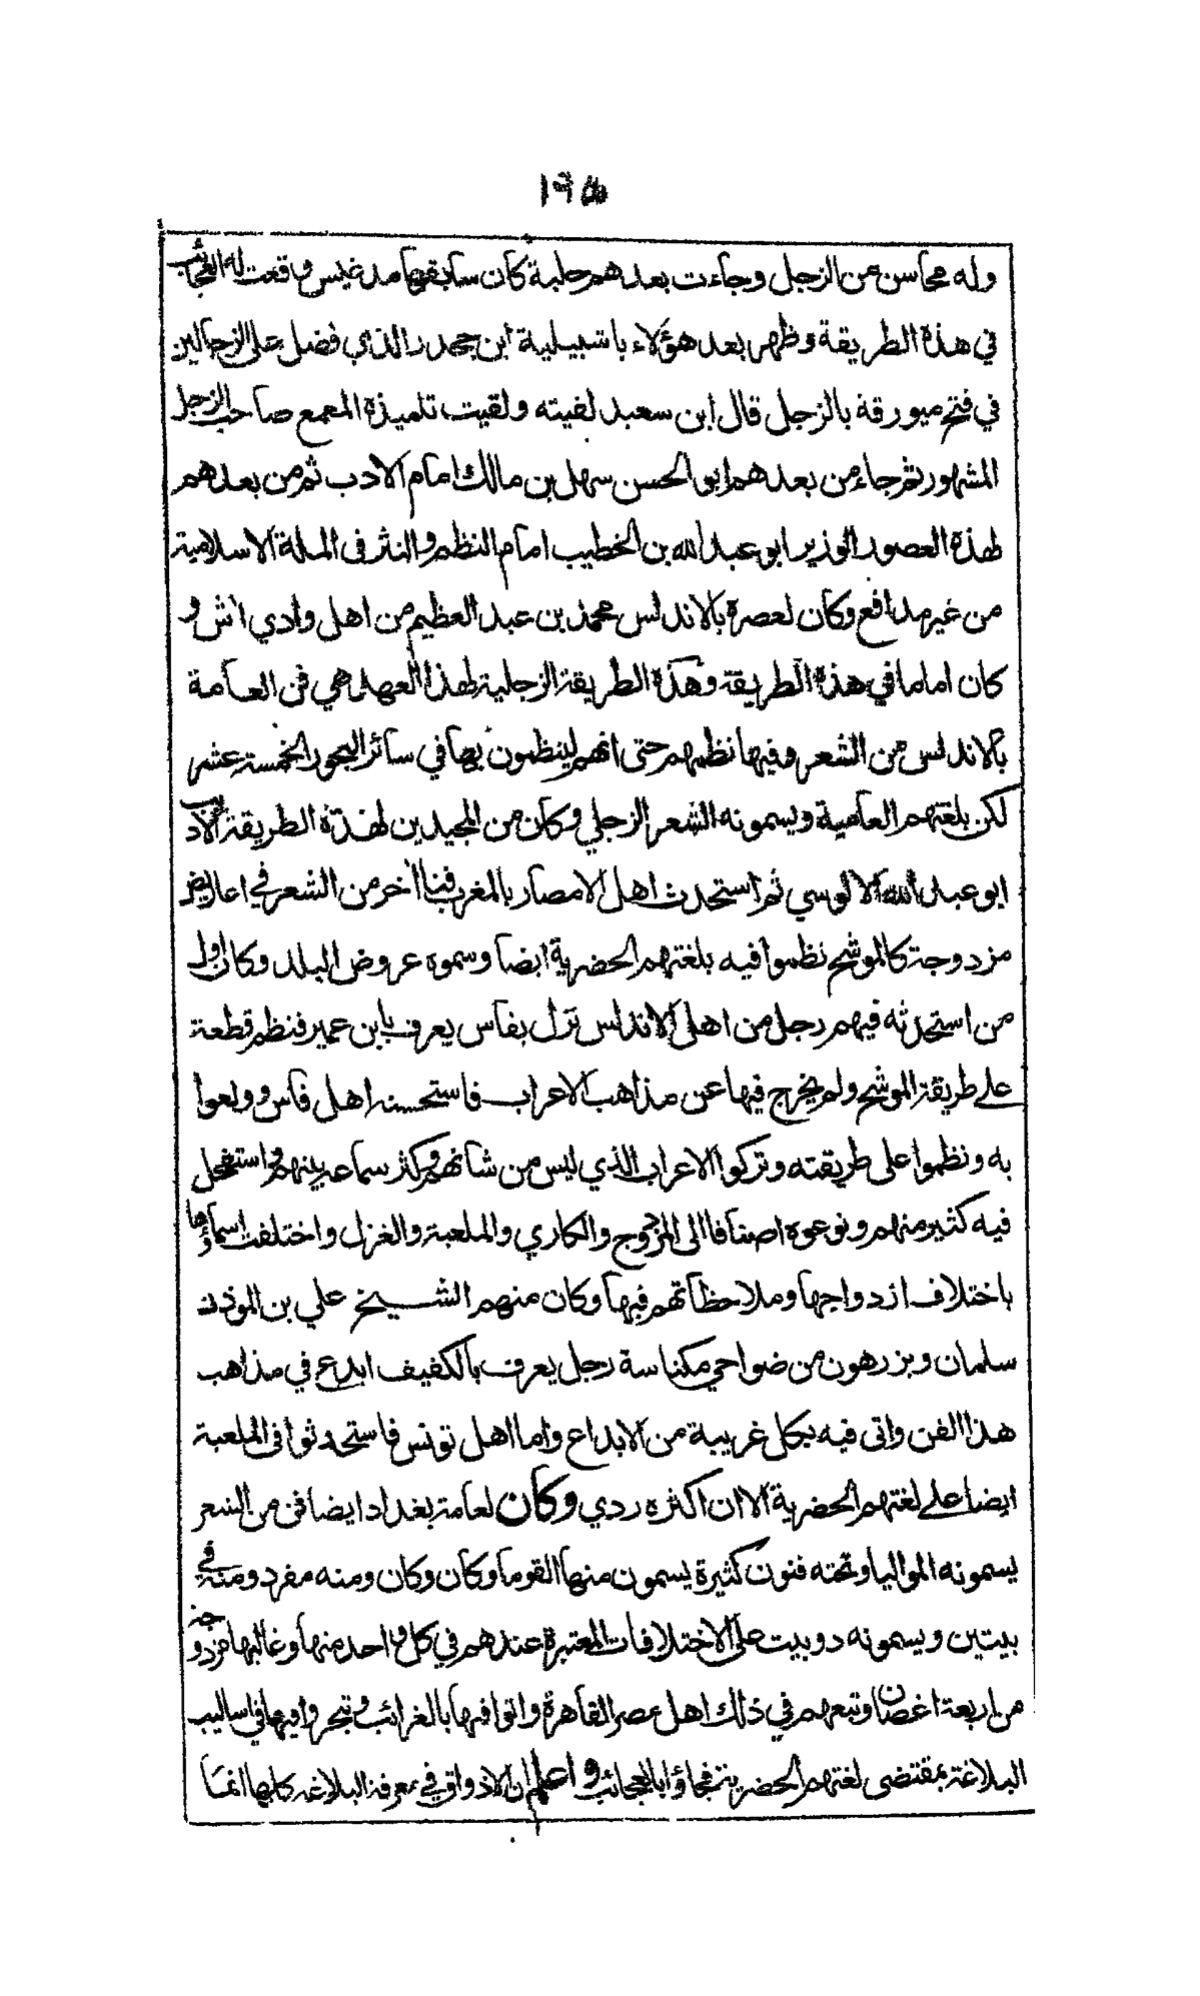 ١٩٥
وله محاسن من الزجل وجاءت بعدهم حلبة كان سابقها مدغيس وقعت له العجائب
في هذه الطريقة وظهر بعد هؤلاء باشبيلية ابن جحدر الذي فضل على الزجالين
في فتح ميورقة بالزجل قال ابن سعيد لقيته ولقيت تلميذه المعمع صاحب الزجل
المشهور ثم جاء من بعدهم ابو الحسن سهل بن مالك امام الادب ثم من بعدهم
لهذه العصور الوزير ابو عبد الله بن الخطيب امام النظم والنثر في الملة الاسلامية
من غير مدافع وكان لعصره بالاندلس محمد بن عبد العظيم من اهل وادي اش و
كان اماما في هذه الطريقة وهذه الطريقة الزجلية لهذا العهد هي فن العامة
بالاندلس من الشعر وفيها نظمهم حتى انهم لينظمون بها في سائر البحور الخمسة عشر
لكن بلغتهم العامية ويسمونه الشعر الزجلي وكان من المجيدين لهذه الطريقة الاديب
ابو عبد الله الالوسي ثم استحدث اهل الامصار بالمغرب فنا اخر من الشعر في اعاريض
مزدوجة كالموشح نظموا فيه بلغتهم الحضرية ايضا وسموه عروض البلد وكان اول
من استحدثه فيهم رجل من اهل الاندلس نزل بفاس يعرف بابن عمير فنظم قطعة
على طريقة الموشح ولم يخرج فيها عن مذاهب الاعراب فاستحسنه اهل فاس وولعوا
به ونظموا على طريقته وتركوا الاعراب الذي ليس من شانهم وكثر سماعه بينهم واستفحل
فيه كثير منهم ونوعوه اصنافا الى المزدوج والكاري والملعبة والغزل واختلفت اسماؤها
باختلاف ازدواجها وملاحظاتهم فيها وكان منهم الشيخ علي بن الموذن
سلمان وبزرهون من ضواحي مكناسة رجل يعرف بالكفيف ابدع في مذاهب
هذا الفن واتى فيه بكل غريبة من الابداع واما اهل تونس فاستحدثوا في الملعبة
ايضا على لغتهم الحضرية الا ان اكثره ردي وكان لعامة بغداد ايضا فن من الشعر
يسمونه المواليا وتحته فنون كثيرة يسمون منها القوما وكان وكان ومنه مفرد ومنه في
بيتين ويسمونه دوبيت على الاختلافات المعتبرة عندهم في كل واحد منها وغالبها مزدوجة
من اربعة اغصان وتبعهم في ذلك اهل مصر القاهرة واتوا فيها بالغرائب وتبحروا فيها في اساليب
البلاغة بمقتضى لغتهم الحضرية فجاؤا بالعجائب واعلم ان الاذواق في معرفة البلاغة كلها انما